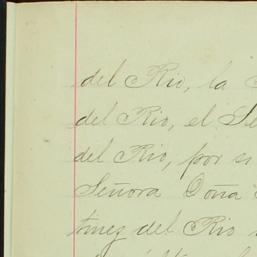 del Rio, la
del Rio, el Se
del Rio, por si
Señora Doña
tinez del Rio